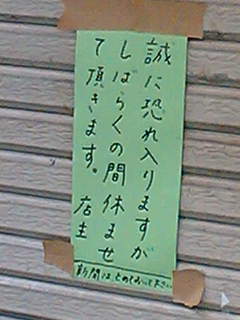 誠に恐れ入りますが
しばらくの間休ませ
て頂きます。 店主
新聞はとめておいて下さい